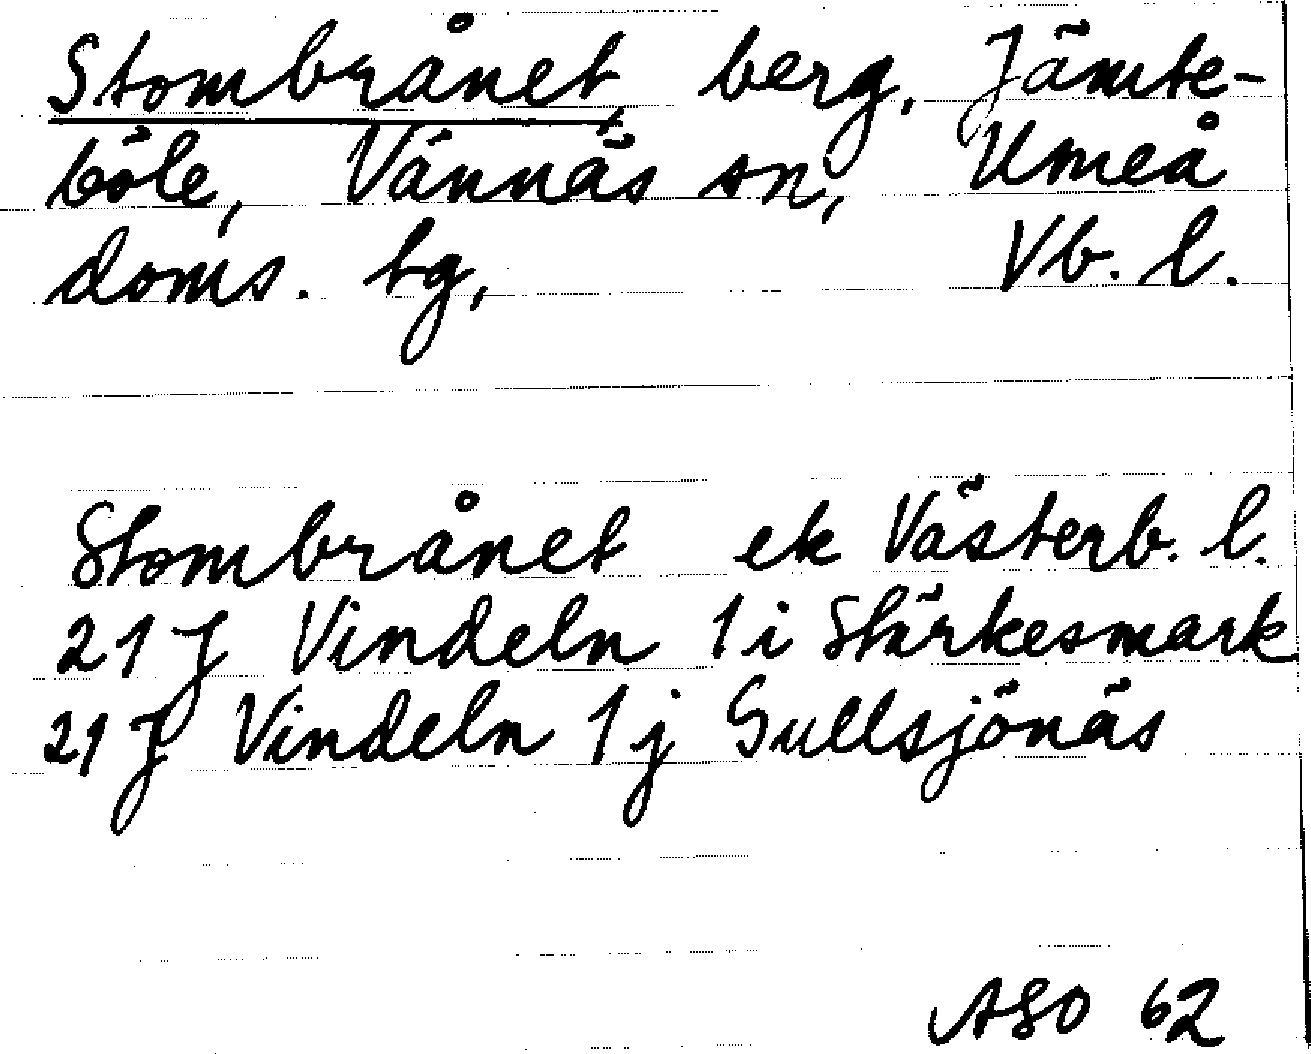 Stombrånet, berg, Jämte-
böle, Vännäs sn, Umeå
doms. tg, Vb. l.
Stombrånet ek Västerb. l.
21 J Vindeln 1 i Stärkesmark
21 J Vindeln 1 j Gullsjönäs
ASO 62